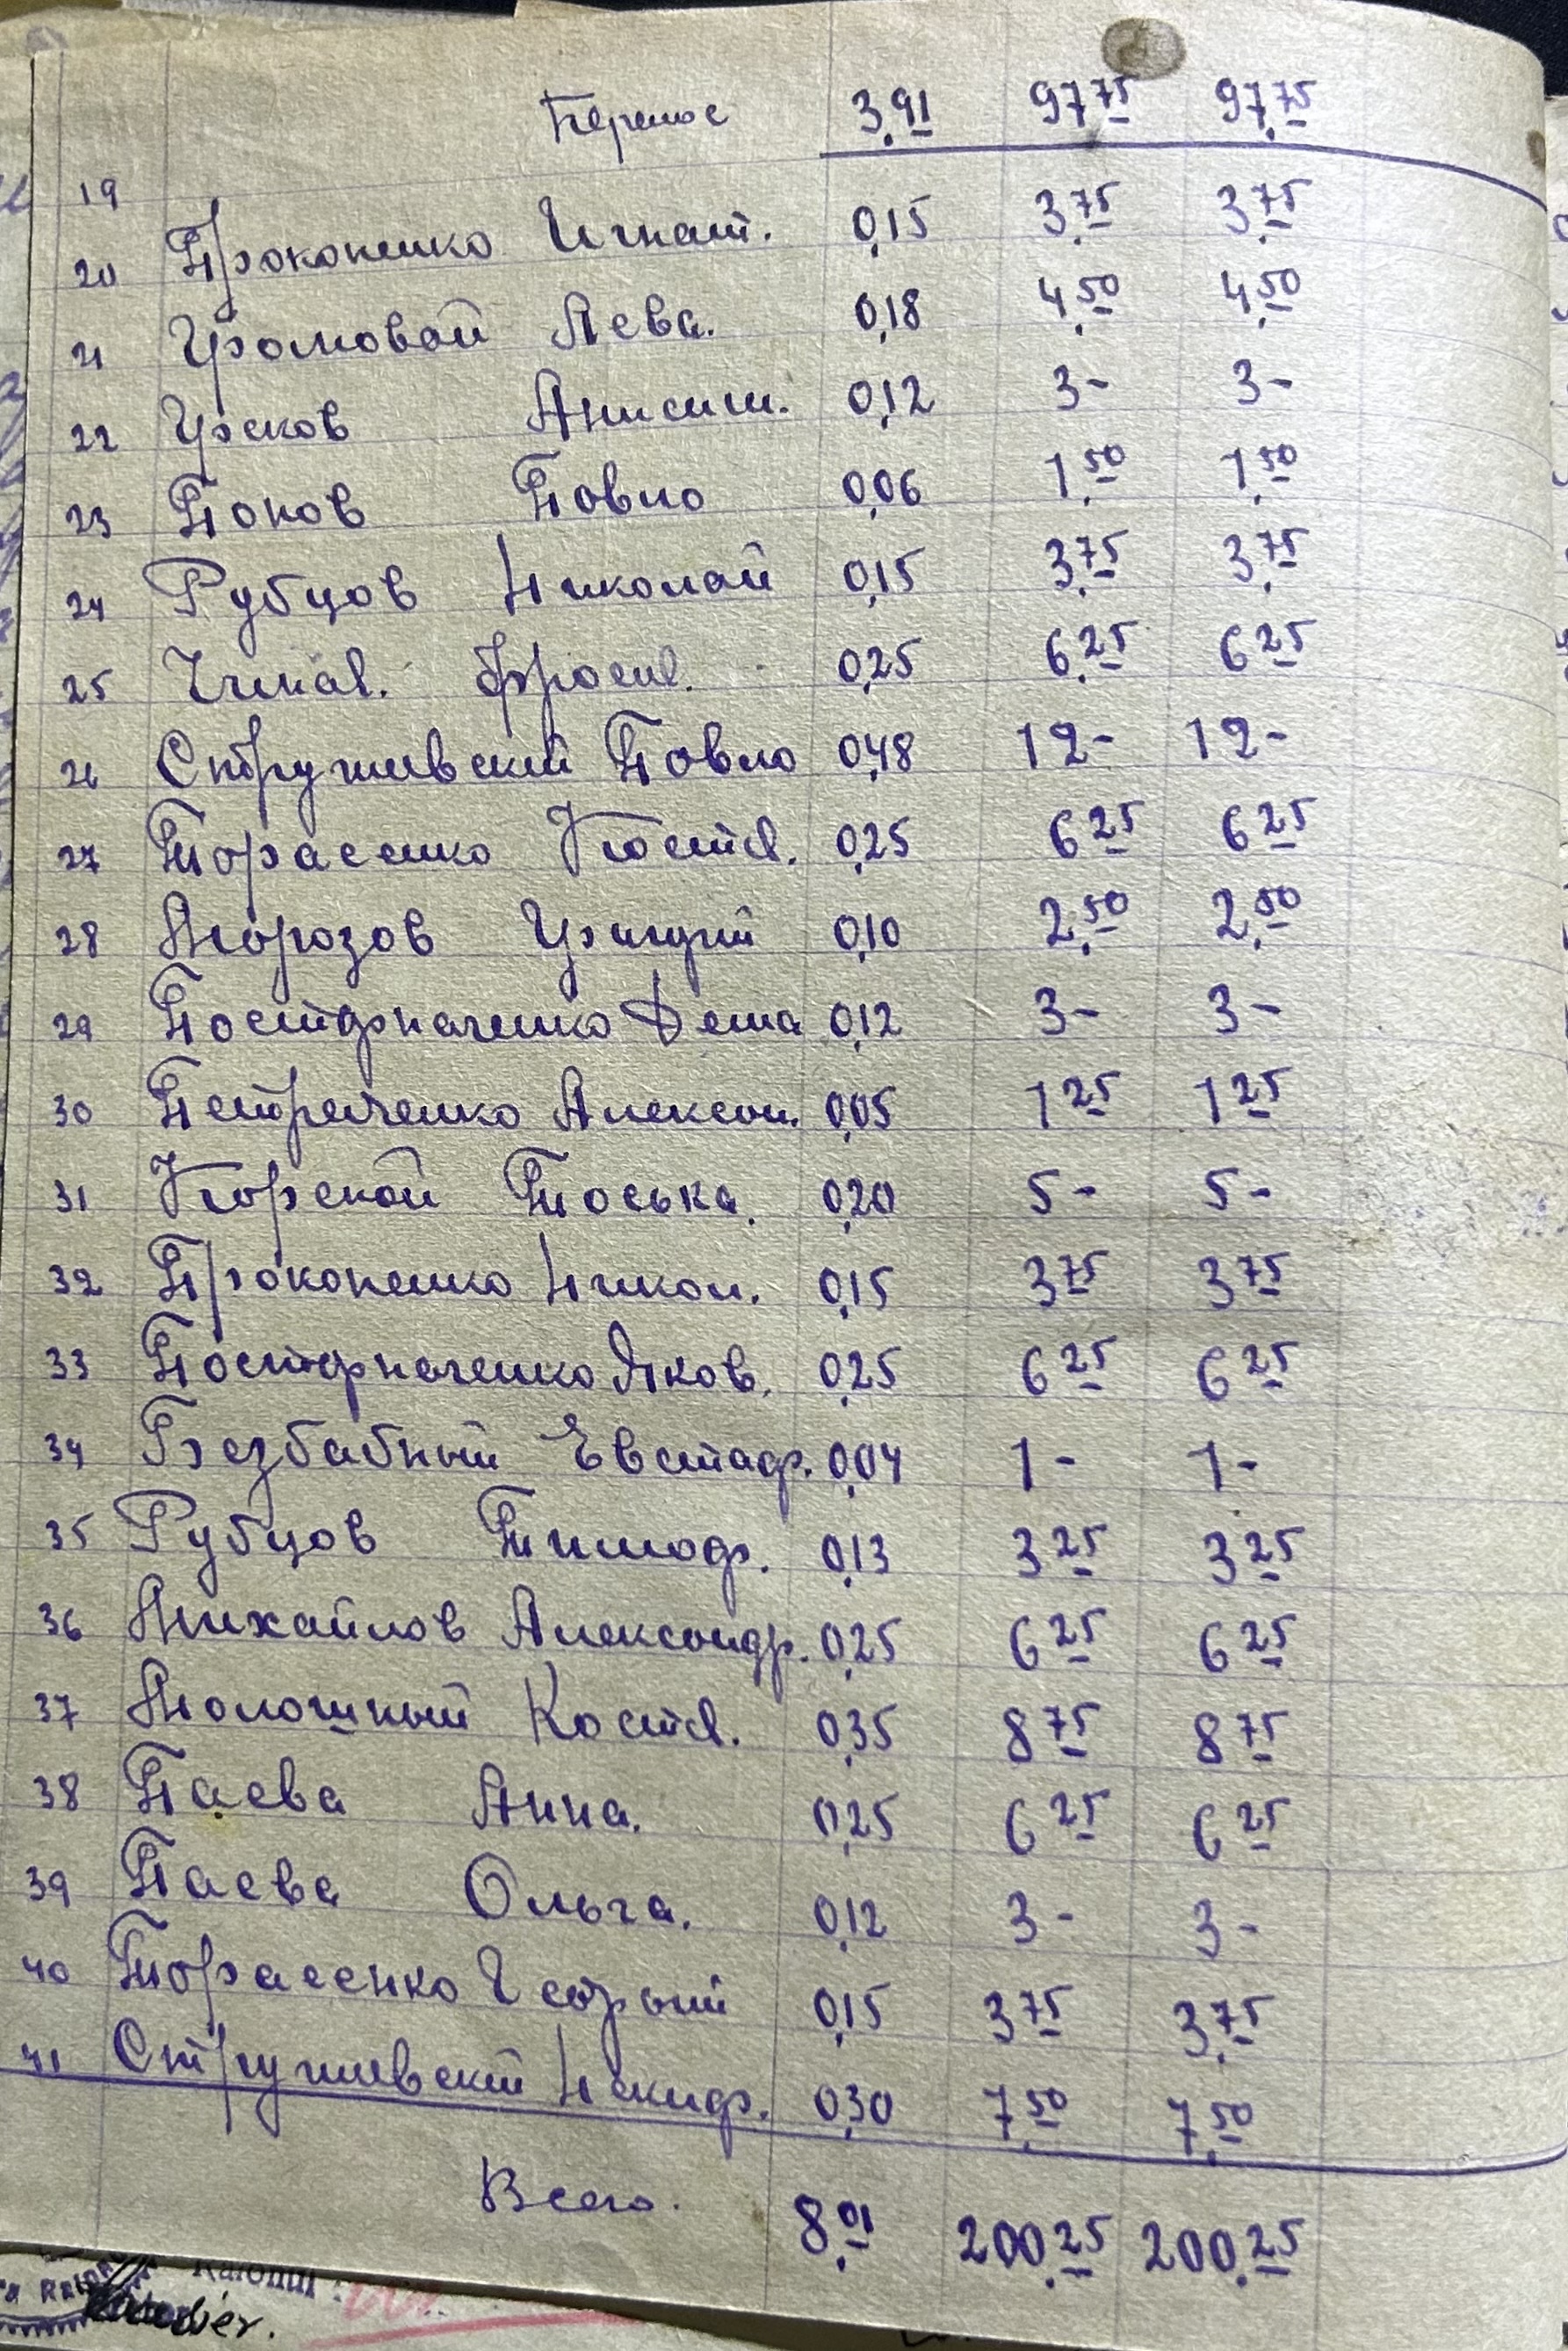 Перенос 3,91 97,75 97,75
19 Прокопенко Игнат. 0,15 3,75 3,75
20 Громовой Лева. 0,18 4,50 4,50
21 Греков Анисим. 0,12 3- 3-
22 Попов Повло 0,06 1,50 1,50
23 Рубцов Николай 0,15 3,75 3,75
24 0,25 6,25 6,25
25 Струтивский Повло 0,48 12- 12-
26 Торасенко Кост. 0,25 6 25 6 25
27 Морозов 0,10 2,50 2,50
28 Постарначенко Дема 0,12 3- 3-
29 Петреченко Алексан. 0,05 1 25 1 25
30 Корской Тоська. 0,20 5- 5-
31 Прокопенко Никол. 0,15 3 75 3 75
32 Постарначенко Яков. 0,25 6 25 6 25
33 Безбабный Евстаф. 0,04 1- 1-
34 Рубцов Тимоф. 0,13 3 25 3 25
35 Михайлов Александр. 0,25 6 25 6 25
36 Молошный Кост. 0,35 8 75 8 75
37 Паева Анна. 0,25 6 25 6 25
38 Паева Ольга. 0,12 3- 3-
39 Торасенко 0,15 3 75 3,75
40 Струтивский 0,30 7,50 7,50
41
Всего. 8,01 200,25 200,25
Raionul